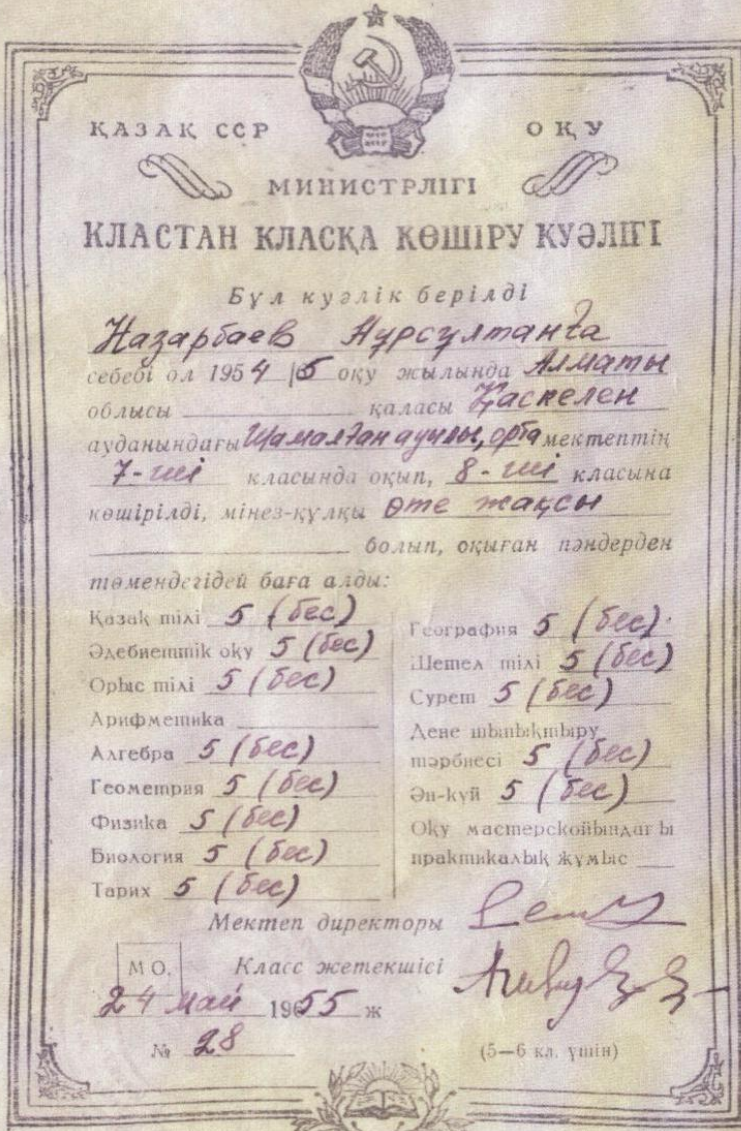 ҚАЗАҚ ССР ОҚУ
МИНИСТРЛІГІ
КЛАСТАН КЛАСҚА КӨШІРУ КУӘЛІГІ
Бұл куәлік берілді
Назарбаев Нұрсұлтанға
себебі ол 1954/5 оқу жылында Алматы
облысы қаласы Қаскелен
ауданындағы Шамалған ауылы, орта мектептің
7-ші класында оқып, 8-ші класына
көшірілді, мінез-құлқы өте жақсы
болып, оқыған пәндерден
төмендегідей баға алды:
Қазақ тілі 5 (бес)
Әдебиеттік оқу 5 (бес)
Орыс тілі 5 (бес)
Арифметика
Алгебра 5 (бес)
Геометрия 5 (бес)
Физика 5 (бес)
Биология 5 (бес)
Тарих 5 (бес)
География 5 (бес)
Шетел тілі 5 (бес)
Сурет 5 (бес)
Дене шынықтыру
тәрбиесі 5 (бес)
Ән-күй 5 (бес)
Оқу мастерскойындағы
практикалық жұмыс
Мектеп директоры
М О. Класс жетекшісі
24 май 1955 ж
№ 28 (5—6 кл. үшін)